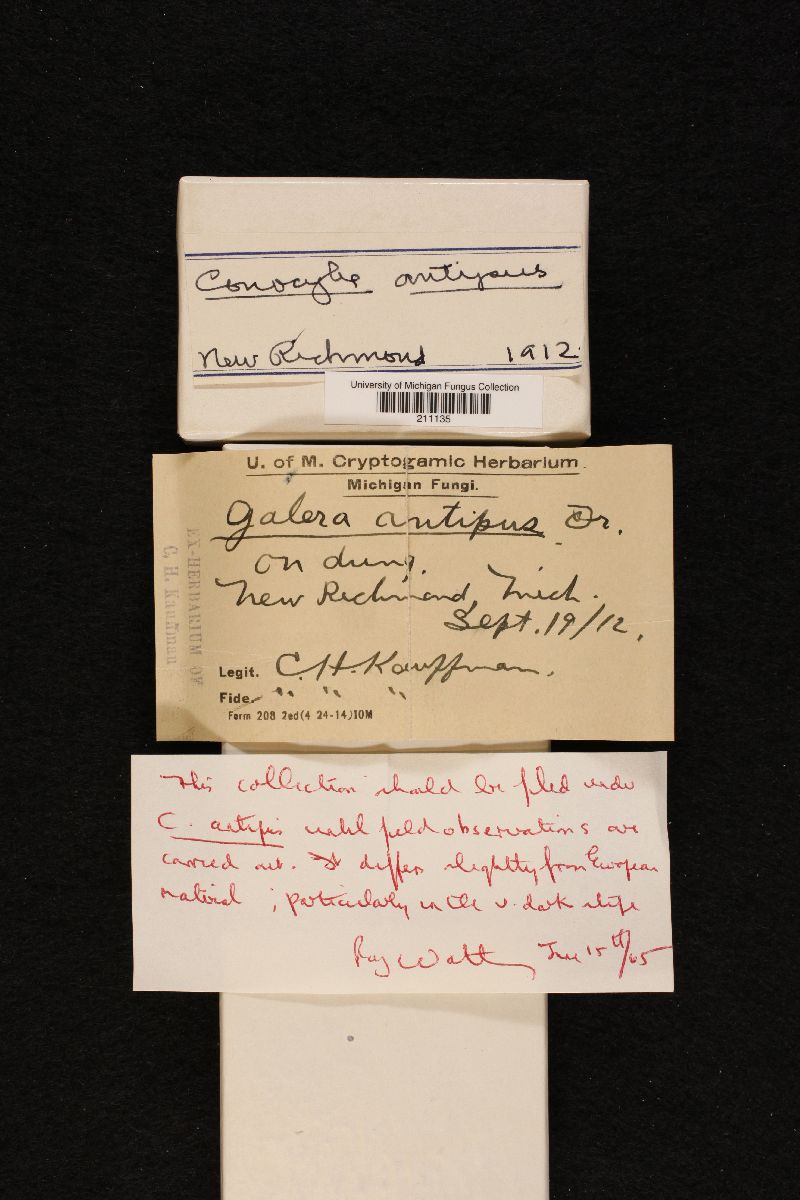 Conocybe antipus
New Richmond 1912
University of Michigan Fungus Collection
211135
U. of M. Cryptogamic Herbarium.
Michigan Fungi.
Galera antipus Fr.
on dung.
New Richmond, Mich.
Sept. 19/12.
Legit. C. H. Kauffman.
Fide. " " "
Form 208 2ed(4 24-14)10M
EX-HERBARIUM OF
C. H. Kauffman
This collection should be filed under
C. antipus until field observations are
carried out. It differs slightly from European
material ; particularly in the v. dark stipe
Roy Watling June 15th/65